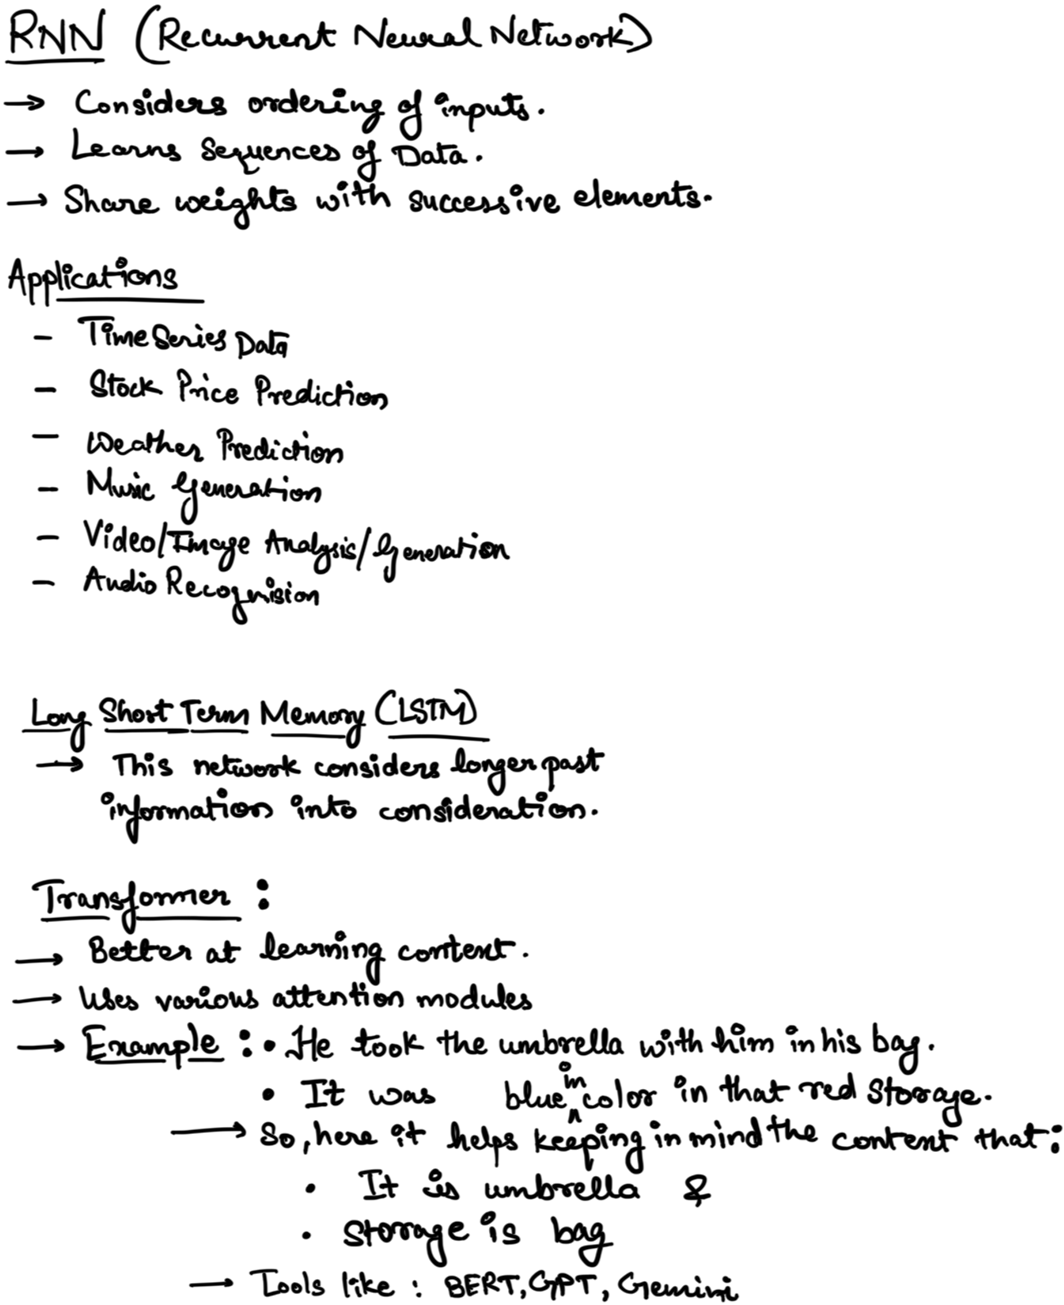 RNN (Recurrent Neural Network)
→ Considers ordering of inputs.
→ Learns Sequences of Data.
→ Share weights with successive elements.
Applications
- Time Series Data
- Stock Price Prediction
- Weather Prediction
- Music Generation
- Video/Image Analysis/Generation
- Audio Recognision
Long Short Term Memory (LSTM)
→ This network considers longer past
information into consideration.
Transformer :
→ Better at learning content.
→ Uses various attention modules
→ Example : • He took the umbrella with him in his bag.
• It was blue in color in that red storage.
→ So, here it helps keeping in mind the content that :
• It is umbrella &
• Storage is bag
→ Tools like : BERT, GPT, Gemini